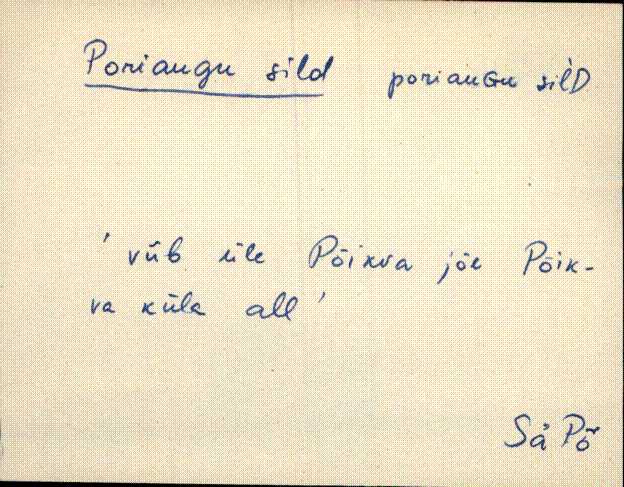 Poriangu sild poriaɴɢu sil'D
'viib üle Põikva jõe Põik-
va küla all'
Sả Põ